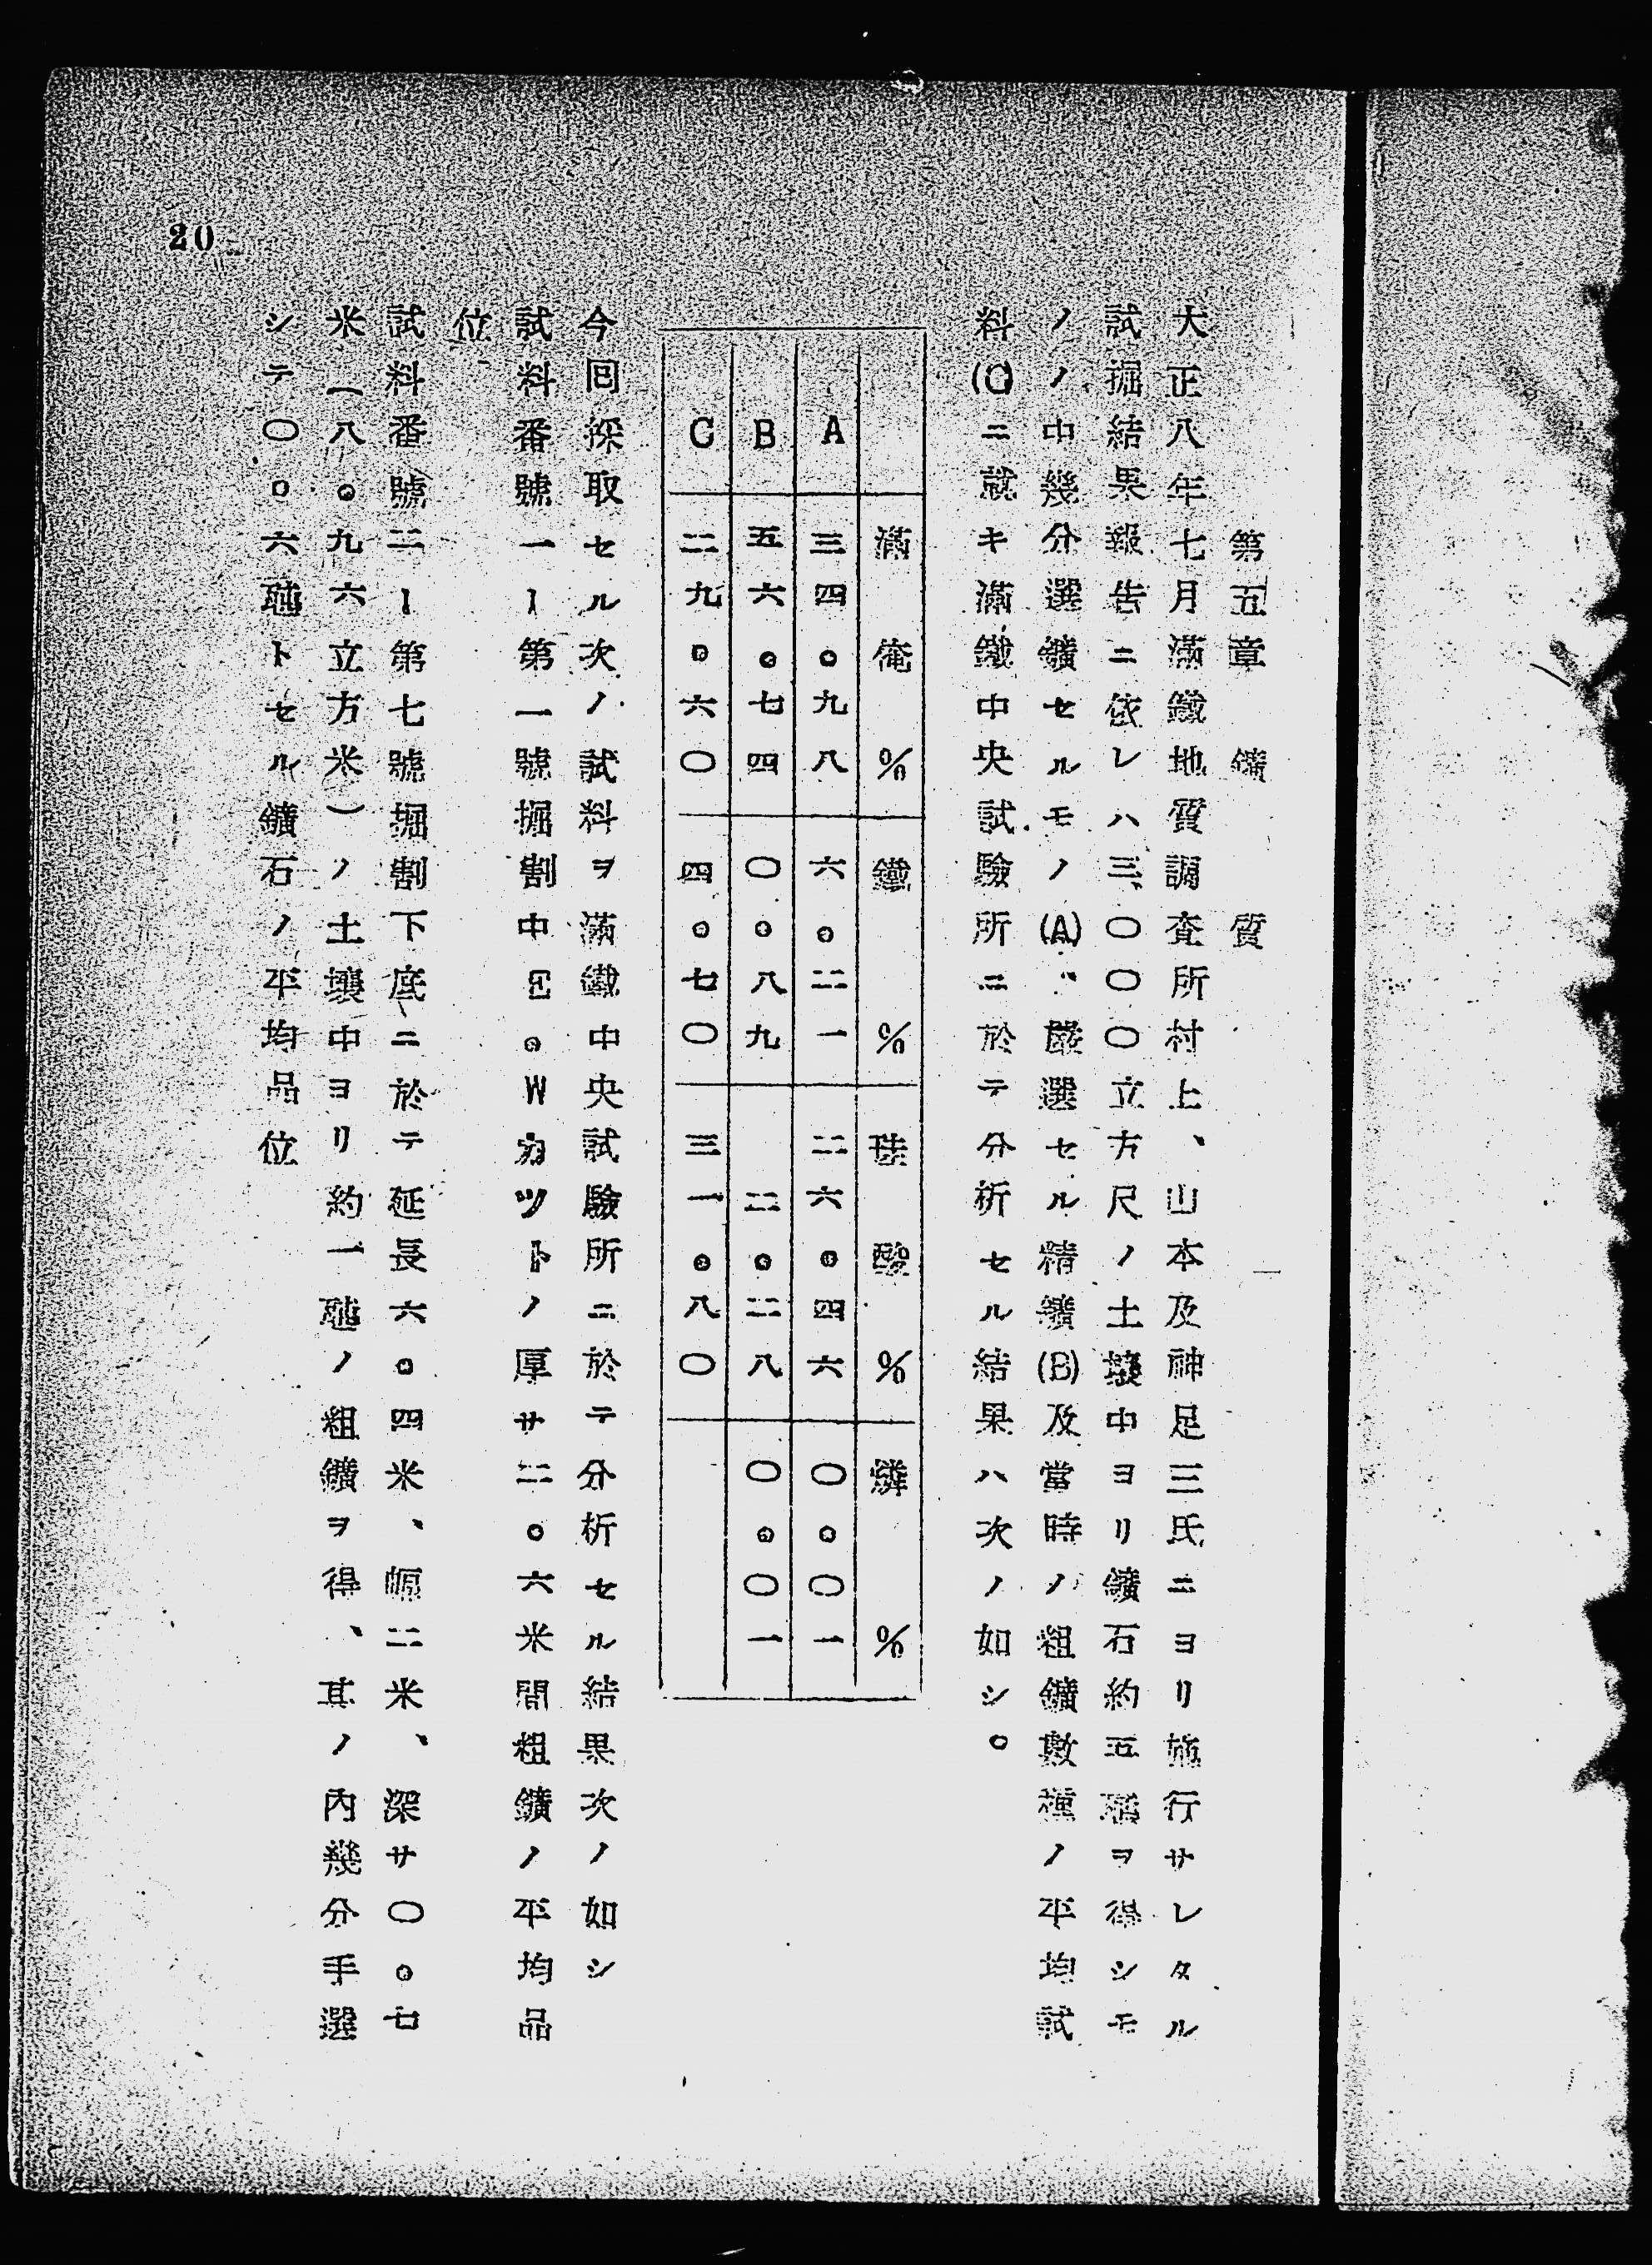 第五章　鑛　質
大正八年七月滿鐵地質調査所村上、山本及神足三氏ニヨリ施行サレタル
試掘結果報告ニ依レハ三、〇〇〇立方尺ノ土壤中ヨリ鑛石約五瓲ヲ得シモ
ノノ中幾分選鑛セルモノ(A)、嚴選セル精鑛(B)及當時ノ粗鑛數種ノ平均試
料(C)ニ就キ滿鐵中央試驗所ニ於テ分析セル結果ハ次ノ如シ。
滿俺%　鐵%　硅酸%　燐%
A　三四。九八　六。二一　二六。四六　〇。〇一
B　五六。七四　〇。八九　二。二八　〇。〇一
C　二九。六〇　四。七〇　三一。八〇
今回採取セル次ノ試料ヲ滿鐵中央試驗所ニ於テ分析セル結果次ノ如シ
試料番號一ー第一號掘割中E。Wカツトノ厚サ二。六米間粗鑛ノ平均品
位、
試料番號二ー第七號掘割下底ニ於テ延長六。四米、幅二米、深サ〇。七
米（八。九六立方米）ノ土壤中ヨリ約一瓲ノ粗鑛ヲ得、其ノ內幾分手選
シテ〇。六瓲トセル鑛石ノ平均品位
20